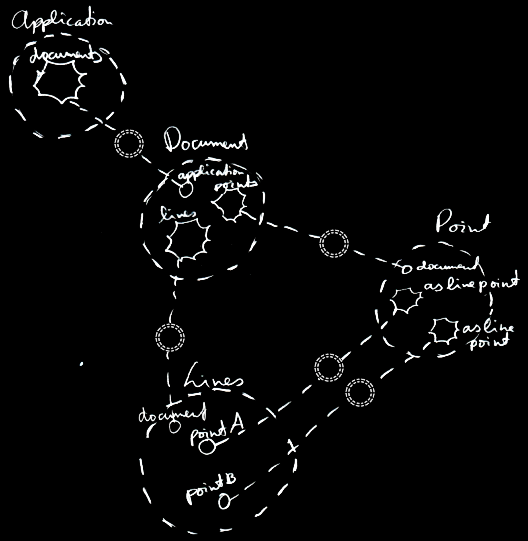 Application
documents
Document
application
points
lines
Point
document
as line point
as line
point
Lines
document
point A
point B